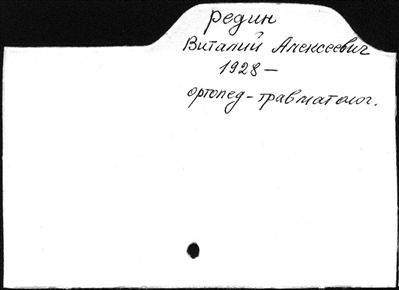 редин
Виталий Алексеевич
1928 –
ортопед-травматолог.